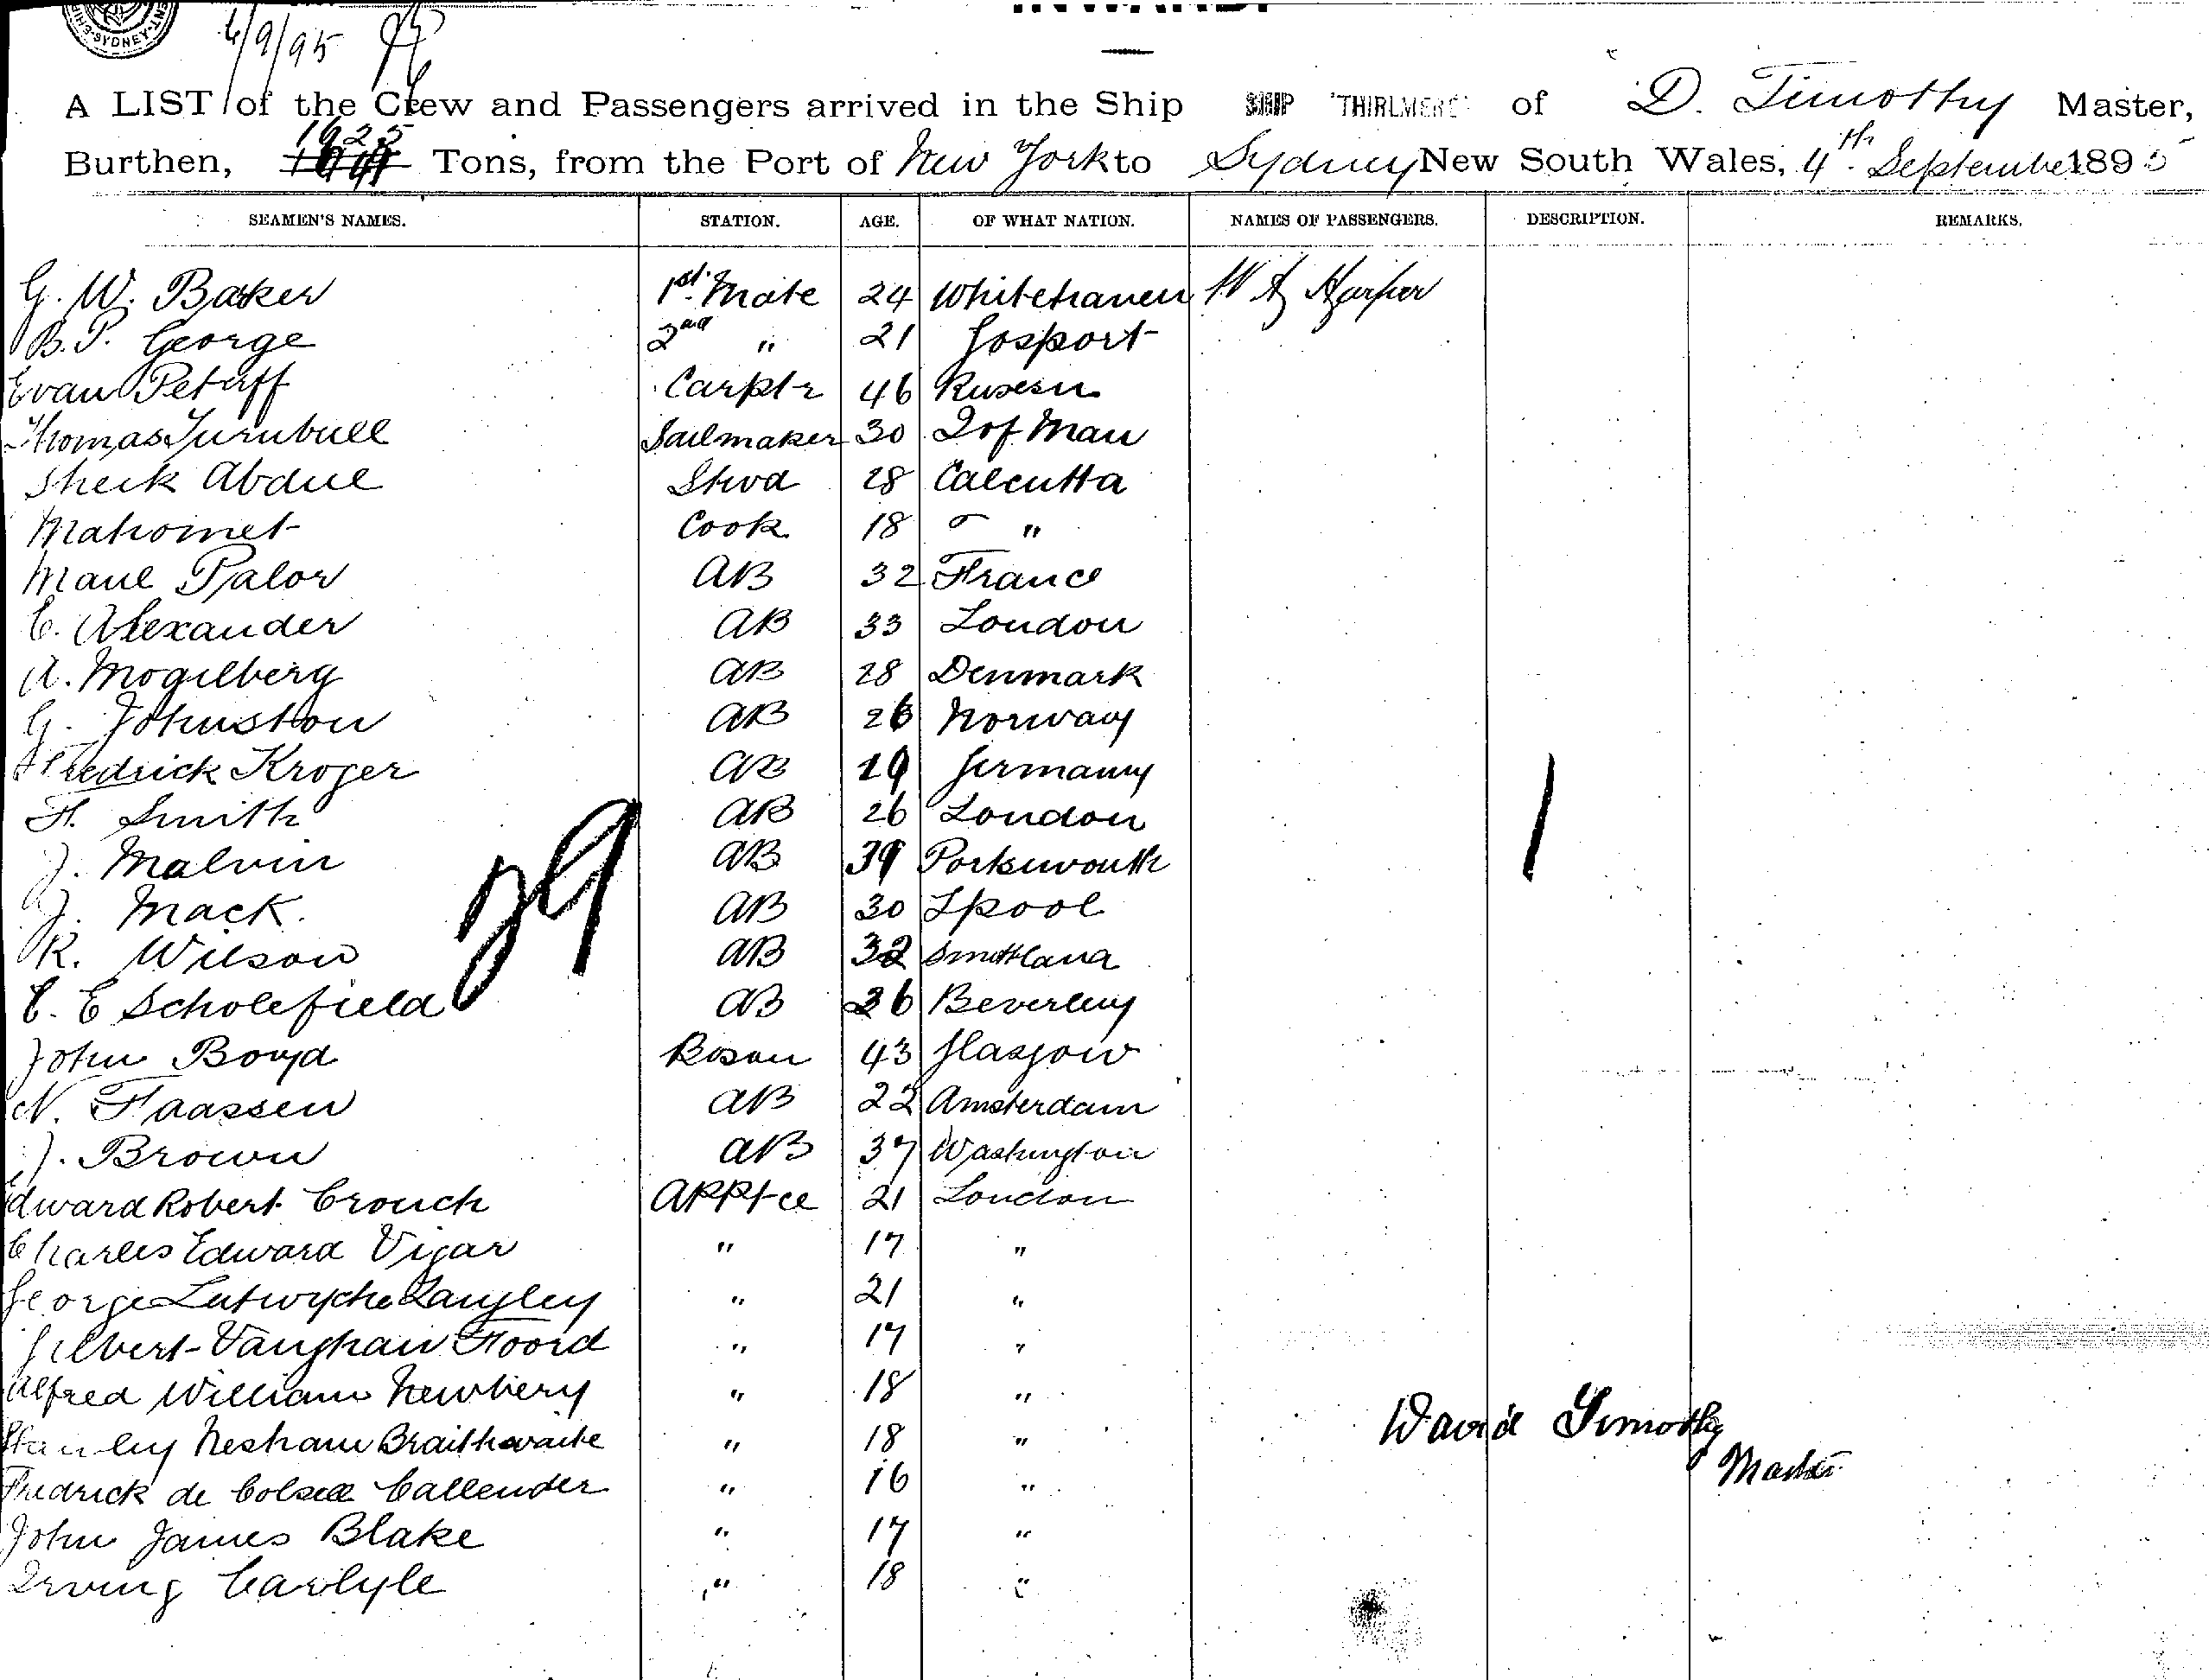 SYDNEY
4/9/95
A LIST of the Crew and Passengers arrived in the Ship SHIP "THIRLMERE" of D. Timothy Master,
1925
Burthen, Tons, from the Port of New York to Sydney New South Wales, 4th September 1895
SEAMEN'S NAMES. STATION. AGE. OF WHAT NATION. NAMES OF PASSENGERS. DESCRIPTION. REMARKS.
G. W. Baker 1st Mate 24 Whitehaven W A Harper
B. P. George 2nd " 21 Gosport
Evan Petaff Carptr 46 Russern
Thomas Turnbull Sailmaker 30 I of Man
Sheik Abdul Stwd 28 Calcutta
Mahomet Cook 18 "
Maul Palor AB 32 France
C. Alexander AB 33 London
A. Mogilberg AB 28 Denmark
G. Johnston AB 26 Norway
Fredrick Kroger AB 19 Germany
F. Smith AB 26 London
J. Malvin AB 39 Portsmouth
J. Mack. AB 30 Lpool
29
R. Wilson AB 32
C. E Scholefield AB 36 Beverley
John Boyd Bosun 43 Glasgow
N. Faassen AB 22 Amsterdam
J. Brown AB 37 Washington
Edward Robert Crouch APPtce 21 London
Charles Edward Vigar " 17 "
George Lutwyche Langley " 21 "
Gilbert Vaughan Foord " 17 "
Alfred William Newbery " 18 "
Stanley Nesham Braithwaite " 18 "
David Timothy
Master
Fredrick de Colsell Callender " 16 "
John James Blake " 17 "
Irving Carlyle " 18 "